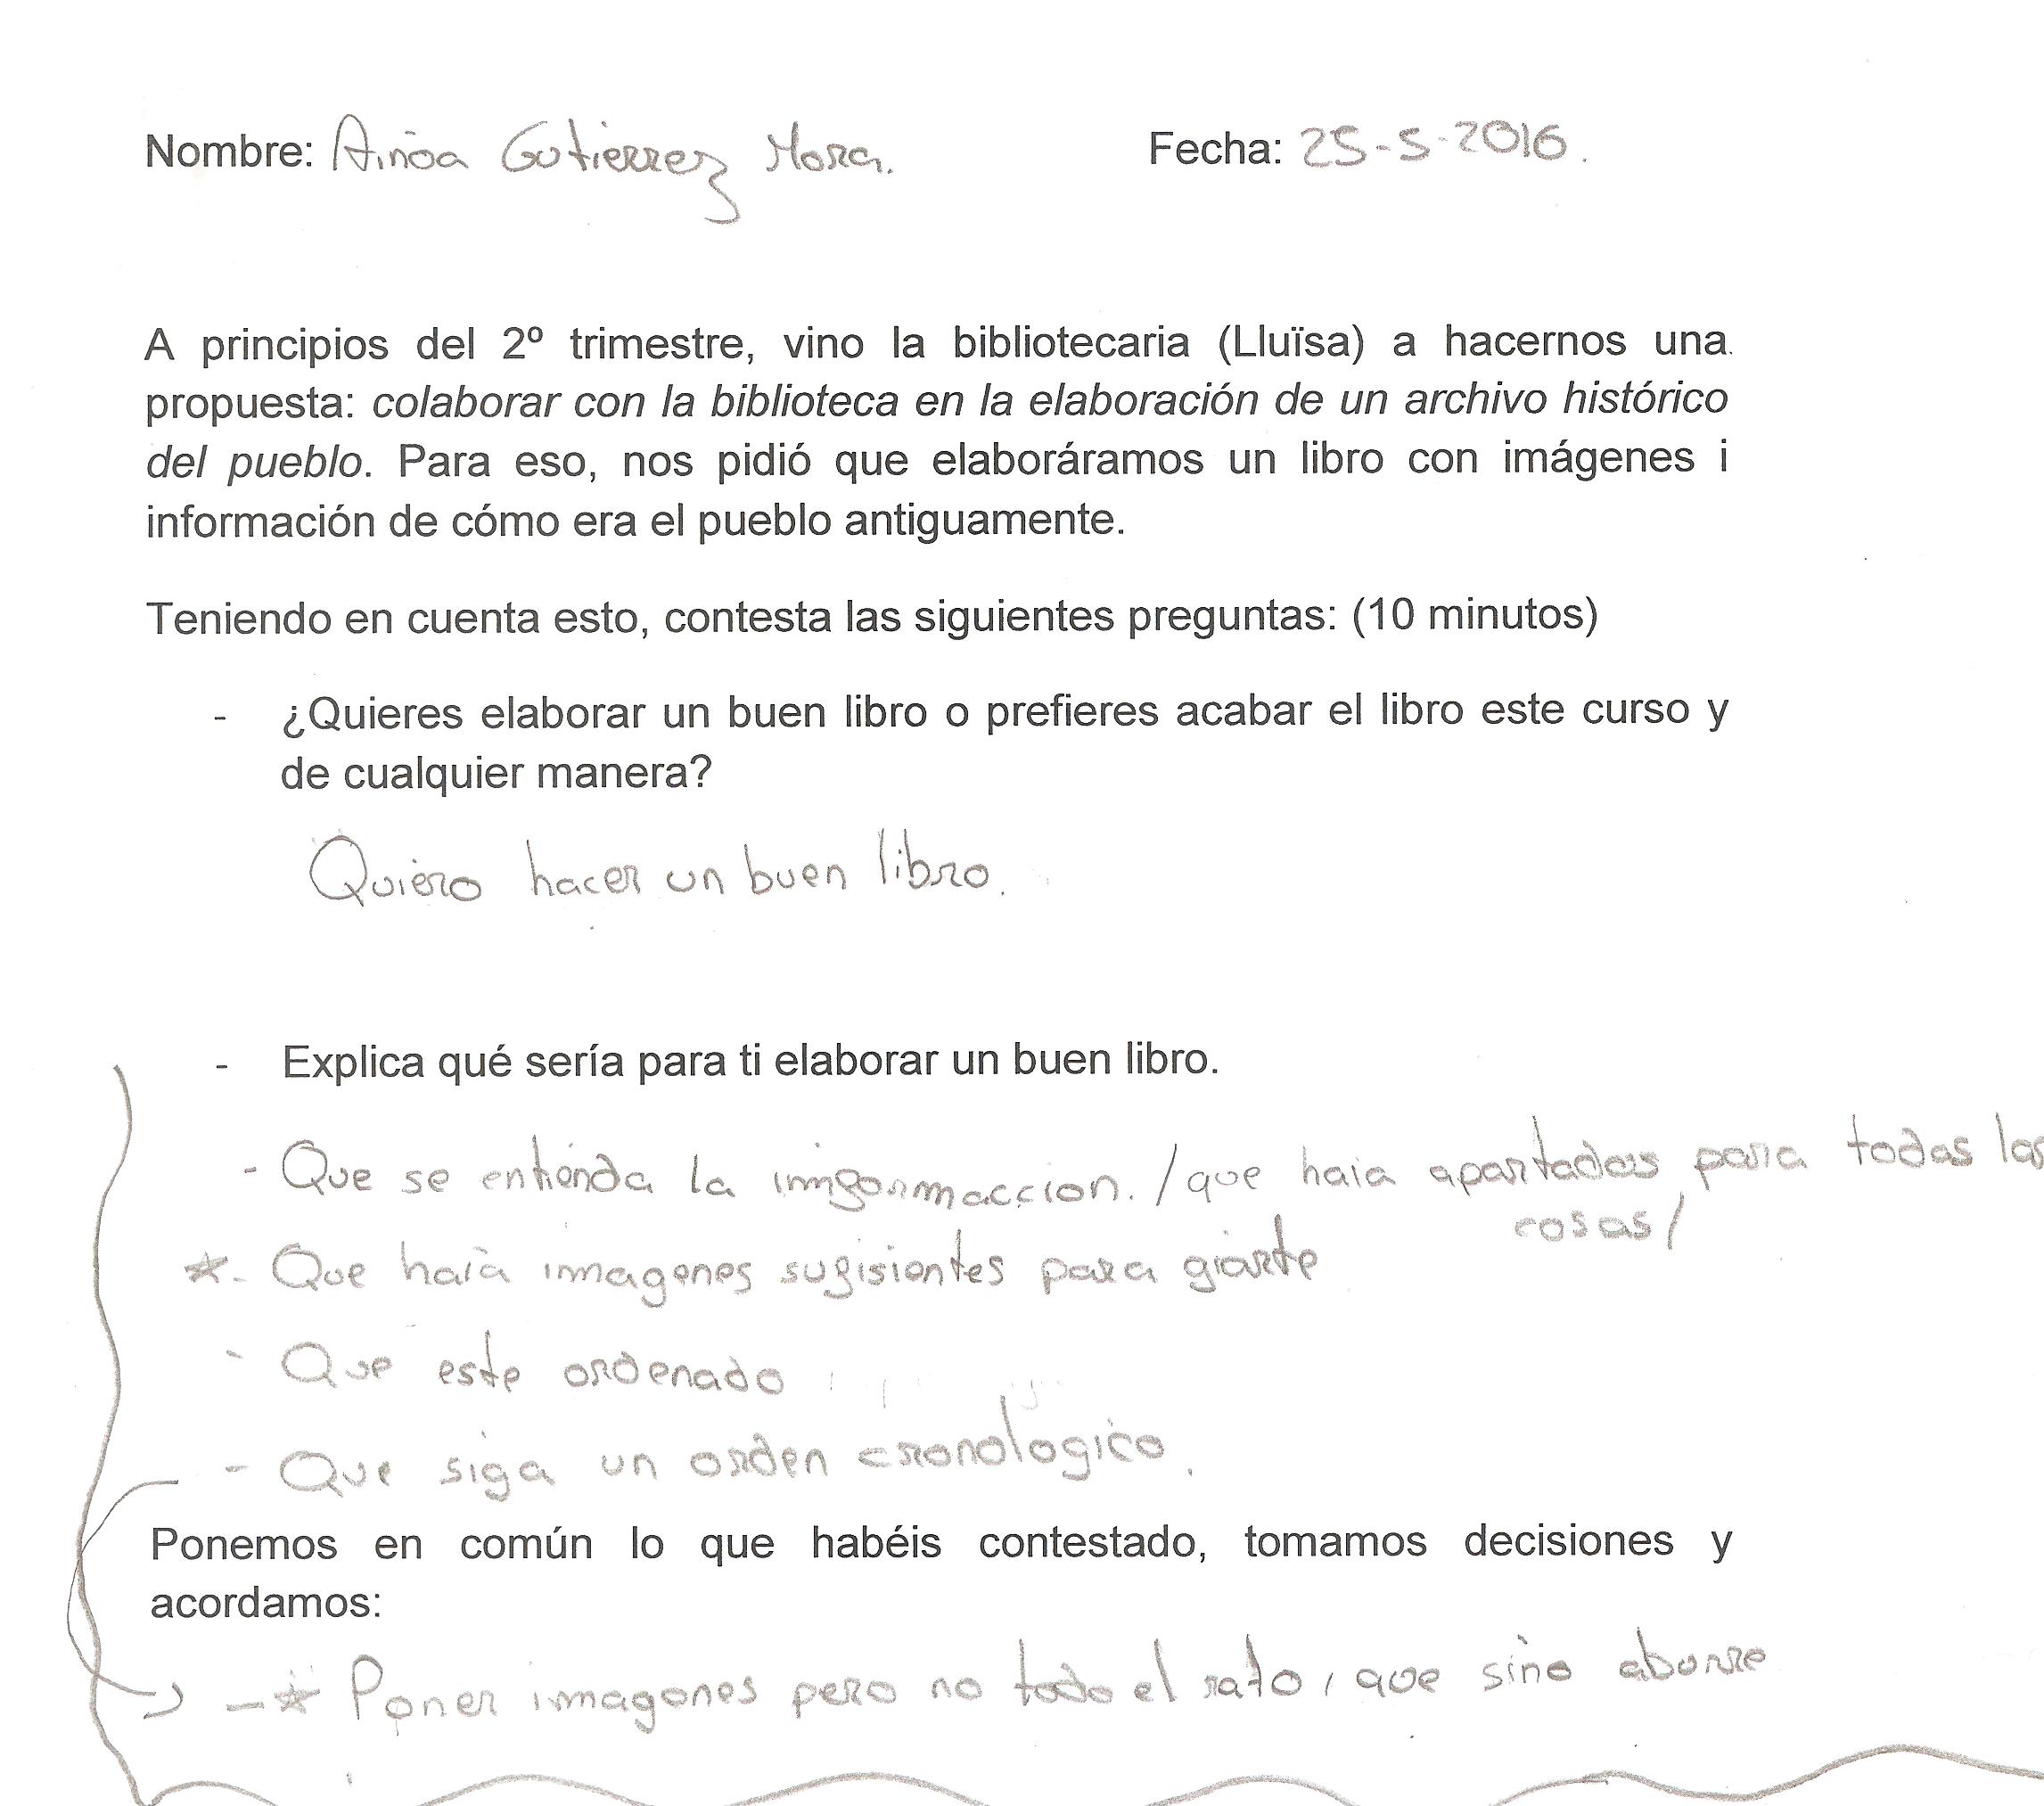 Nombre: Ainoa Gutierrez Mora.
Fecha: 25-5-2016.
A principios del 2º trimestre, vino la bibliotecaria (Lluïsa) a hacernos una
propuesta: colaborar con la biblioteca en la elaboración de un archivo histórico
del pueblo. Para eso, nos pidió que elaboráramos un libro con imágenes i
información de cómo era el pueblo antiguamente.
Teniendo en cuenta esto, contesta las siguientes preguntas: (10 minutos)
- ¿Quieres elaborar un buen libro o prefieres acabar el libro este curso y
de cualquier manera?
Quiero hacer un buen libro.
- Explica qué sería para ti elaborar un buen libro.
- Que se entienda la immformaccion. / que haia apartados para todas las
cosas /
* - Que haia immagenes sufisientes para giarte
- Que este ordenado
- Que siga un orden cronologico.
Ponemos en común lo que habéis contestado, tomamos decisiones y
acordamos:
→ - * Poner imagenes pero no todo el rato, que sino aburre